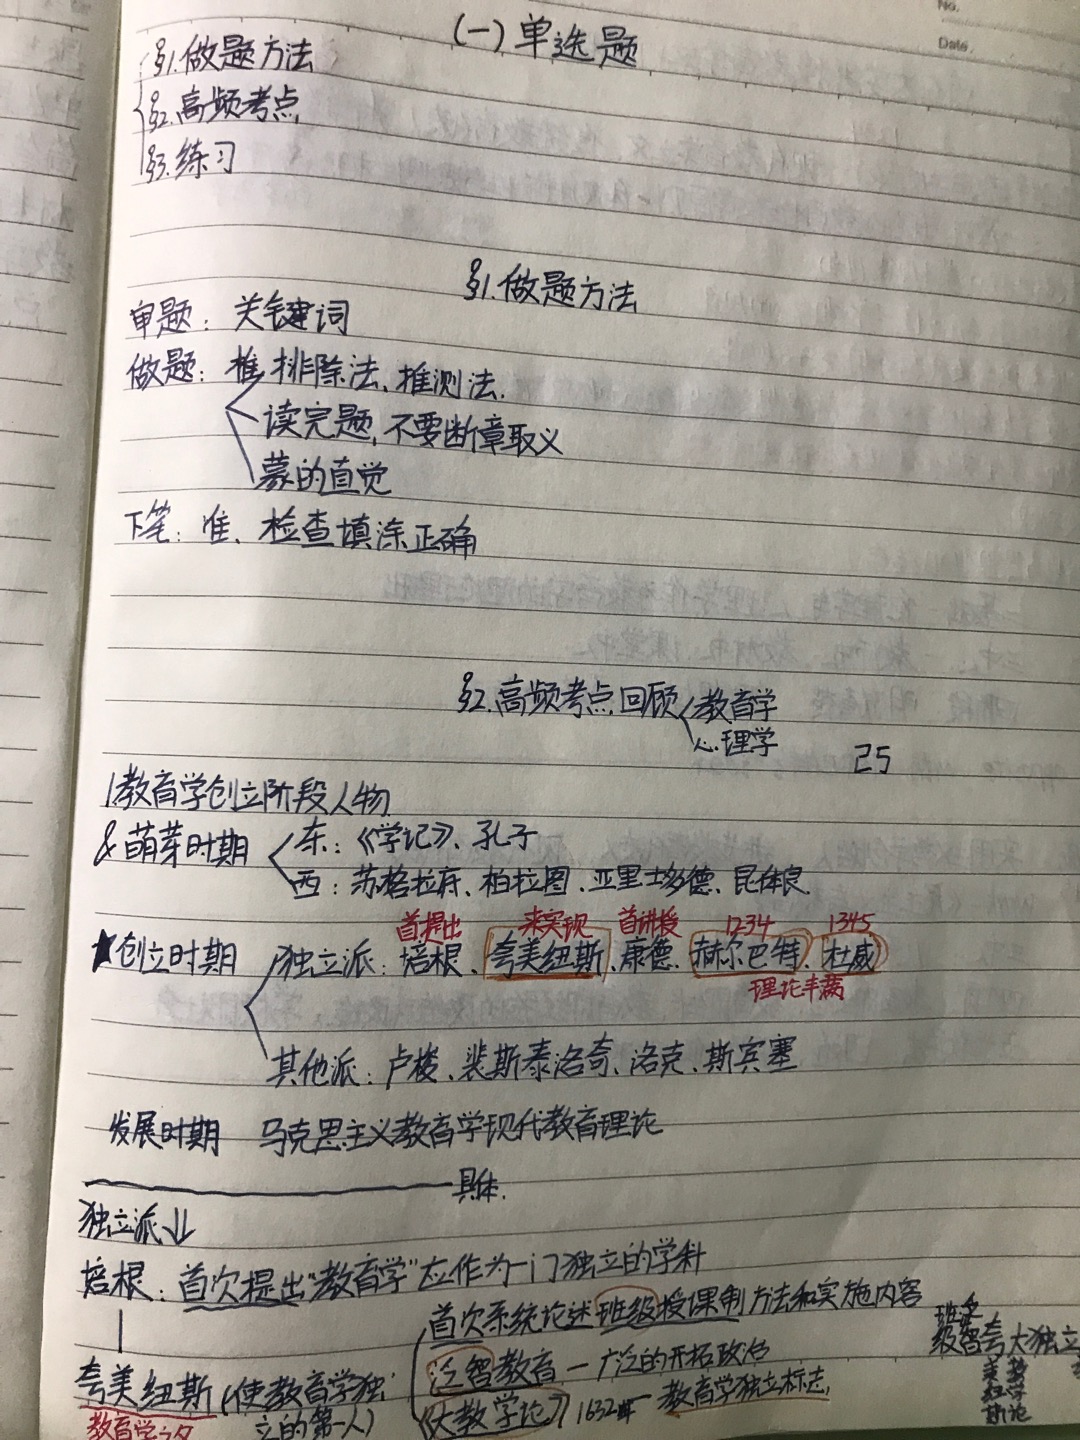 No.
Date
(一)单选题
§1.做题方法
§2.高频考点
§3.练习
§1.做题方法
审题：关键词
做题：排除法、推测法.
读完题,不要断章取义
蒙的直觉
下笔：准、检查填涂正确
§2.高频考点回顾 教育学
心理学
25
1.教育学创立阶段人物
& 萌芽时期 东：《学记》、孔子
西：苏格拉底、柏拉图、亚里士多德、昆体良
首提出 来实现 首讲授 1234 1345
★创立时期 独立派：培根、夸美纽斯、康德、赫尔巴特、杜威
理论丰满
其他派：卢梭、裴斯泰洛奇、洛克、斯宾塞
发展时期 马克思主义教育学现代教育理论
具体.
独立派↓
培根：首次提出"教育学"应作为一门独立的学科
首次系统论述班级授课制方法和实施内容
泛智教育一广泛的开拓政治
夸美纽斯(使教育学独立的第一人)
《大教学论》1632年一教育学独立标志,
教育学之父
级智夸大独立
美教
纽学
斯论